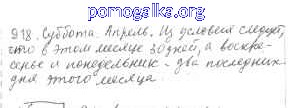 pomogalka.org
918. Суббота. Апрель. Из условия следует,
что в этом месяце 30 дней, а воскре-
сенье и понедельник - два последних
дня этого месяца.